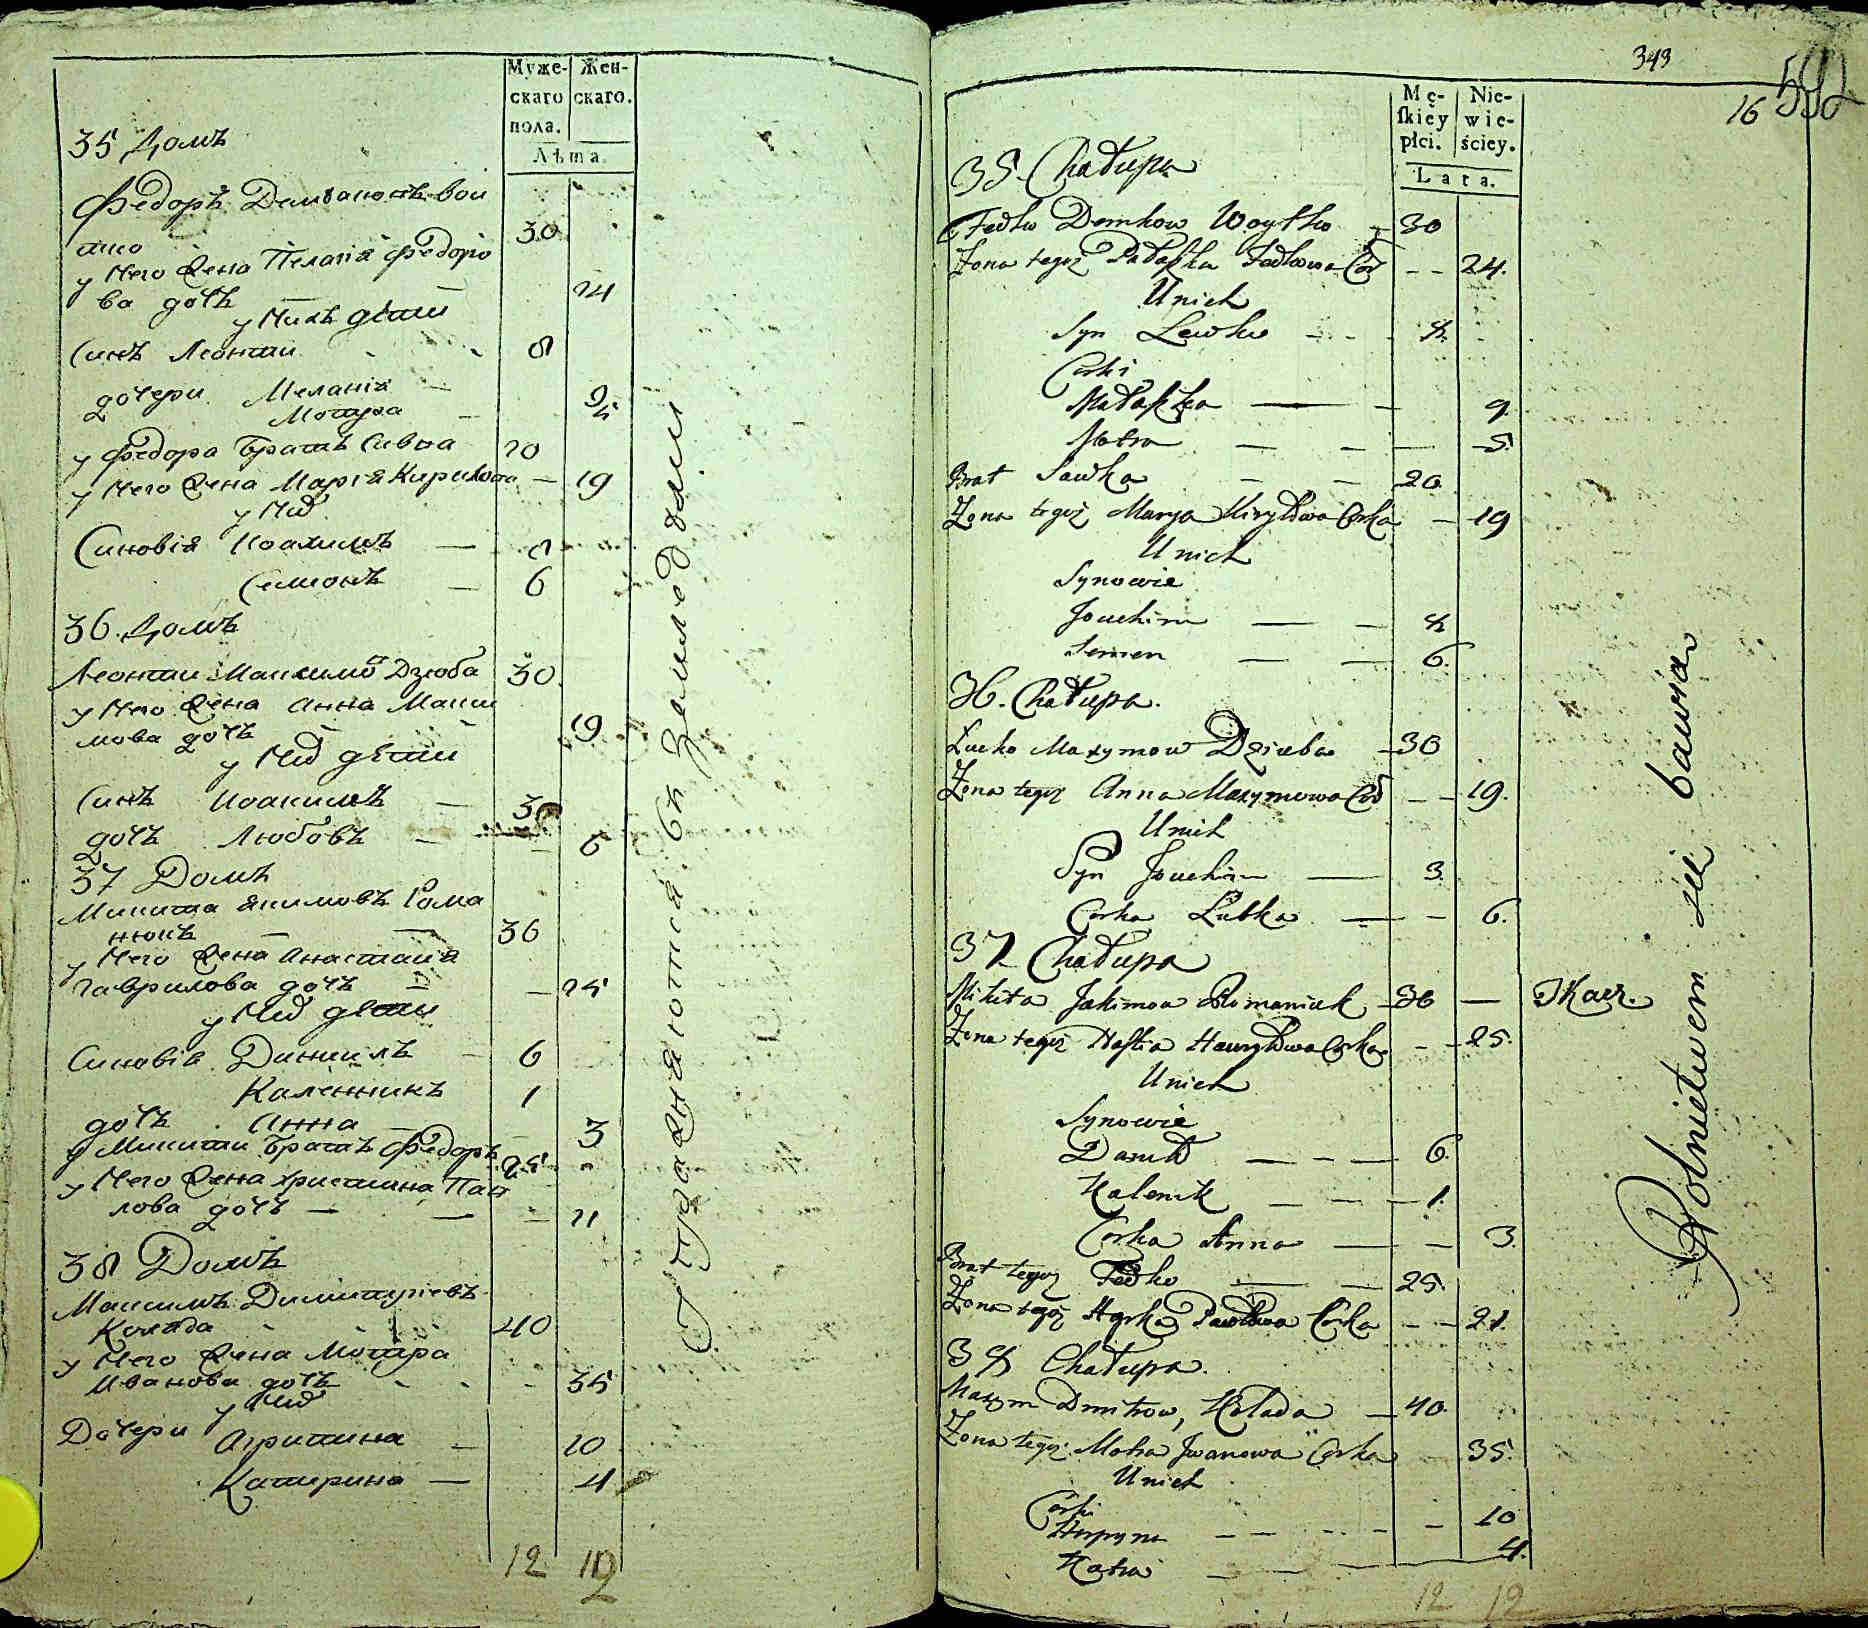 Муже-
скаго
пола.
Жен-
скаго.
Лѣта.
35 Домъ
Федоръ Демяновъ вои
тко 30
у Него Жена Пелагія Федоро
ва дочь 24
у Нихъ дѣти
Синъ Леонтии 8
дочери Меланія 9
Мотра 5
у Федора Братъ Савва 20
у Него Жена Марія Кирилова 19
у Них
Синовія Иоакимъ 8
Семионъ 6
36. Домъ
Леонтии Максимов Дзюба 30
у Него Жена Анна Макси
мова дочь 19
у Них дѣти
Синъ Иоакимъ 3
дочь Любовъ 6
37 Домъ
Микита Якимовъ Рома
нюкъ 36
у Него Жена Анастасия
Гаврилова дочь 25
у Них дѣти
Синовія Даниилъ 6
Каленникъ 1
дочь Анна 3
у Микити Братъ Федоръ 25
у Него Жена Христина Пав
лова дочь 21
38 Домъ
Максимъ Димитріевъ
Коляда 40
у Него Жена Мотра
Иванова дочь 35
у Них
Дочери Агрипина 10
Катерина 4
12 12
Упражняются въ Земледѣлии
343
592
16
Mę-
skiey
płci.
Nie-
wie-
ściey.
Lata.
35. Chałupa
Fedko Demkow Woytko 30
Żona tegoż Pałaszka Fedkowa Cor 24.
U nich
Syn Lewko 8.
Corki
Małaszka 9.
Motra 5.
Brat Sawka 20
Żona tegoż Marya Kiryłowa Corka 19
U nich
Synowie
Joachim 8
Semen 6.
36. Chałupa.
Lucko Maxymow Dziuba 30
Żona tegoż Anna Maxymowa Cor 19.
U nich
Syn Joachim 3.
Corka Lubka 6.
37 Chałupa
Mikita Jakimow Romaniuk 36 — Tkacz.
Żona tegoż Nastia Hawryłowa Corka 25.
U nich
Synowie
Daniło 6.
Kalenik 1.
Corka Anna 3.
Brat tegoż Fedko 25.
Żona tegoż Hyrka Pawłowa Corka 21.
38 Chałupa.
Maxym Dmitrow, Kolada 40.
Żona tegoż Motra Jwanowa Corka 35.
U nich
Corki
Horpyna 10
Katra 4.
12 12
Rolnictwem się bawią